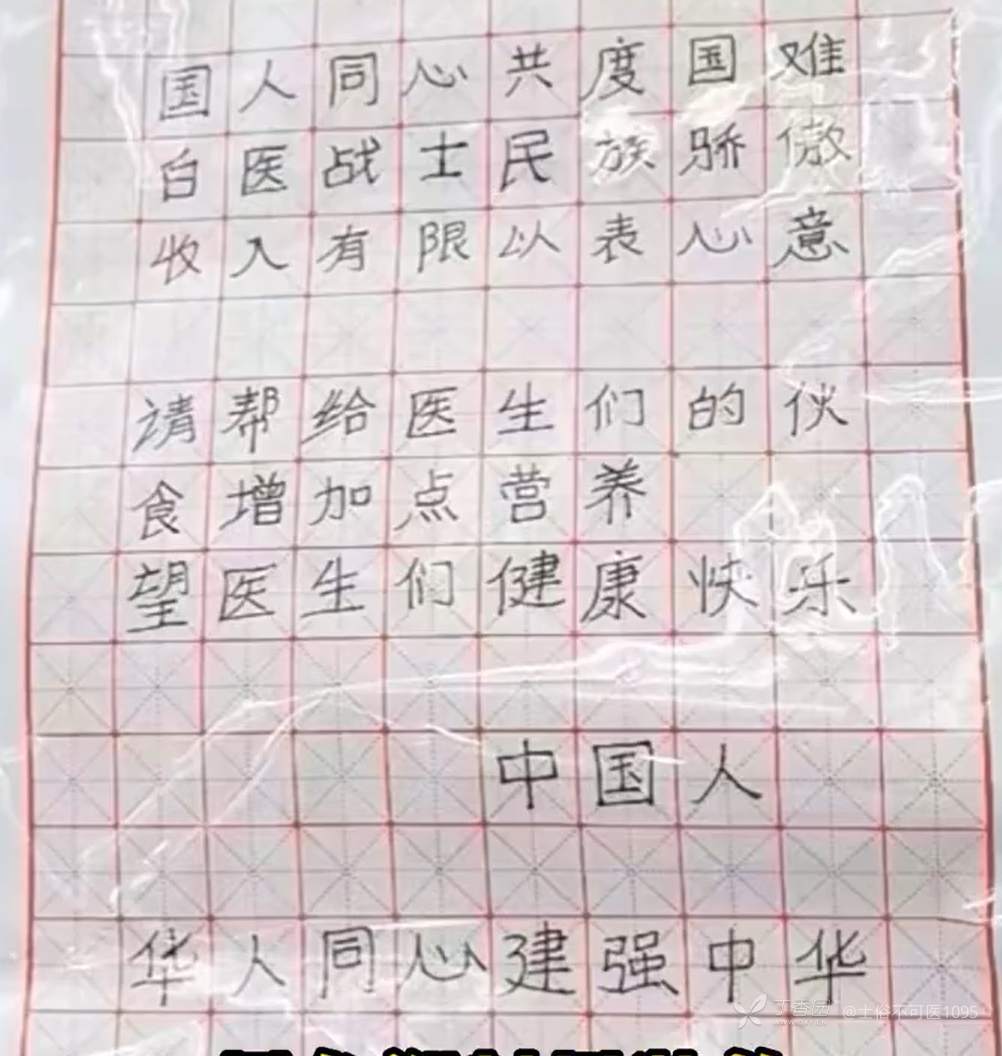 国人同心共度国难
白医战士民族骄傲
收入有限以表心意
请帮给医生们的伙
食增加点营养
望医生们健康快乐
中国人
华人同心建强中华
丁香园 @士俗不可医1095